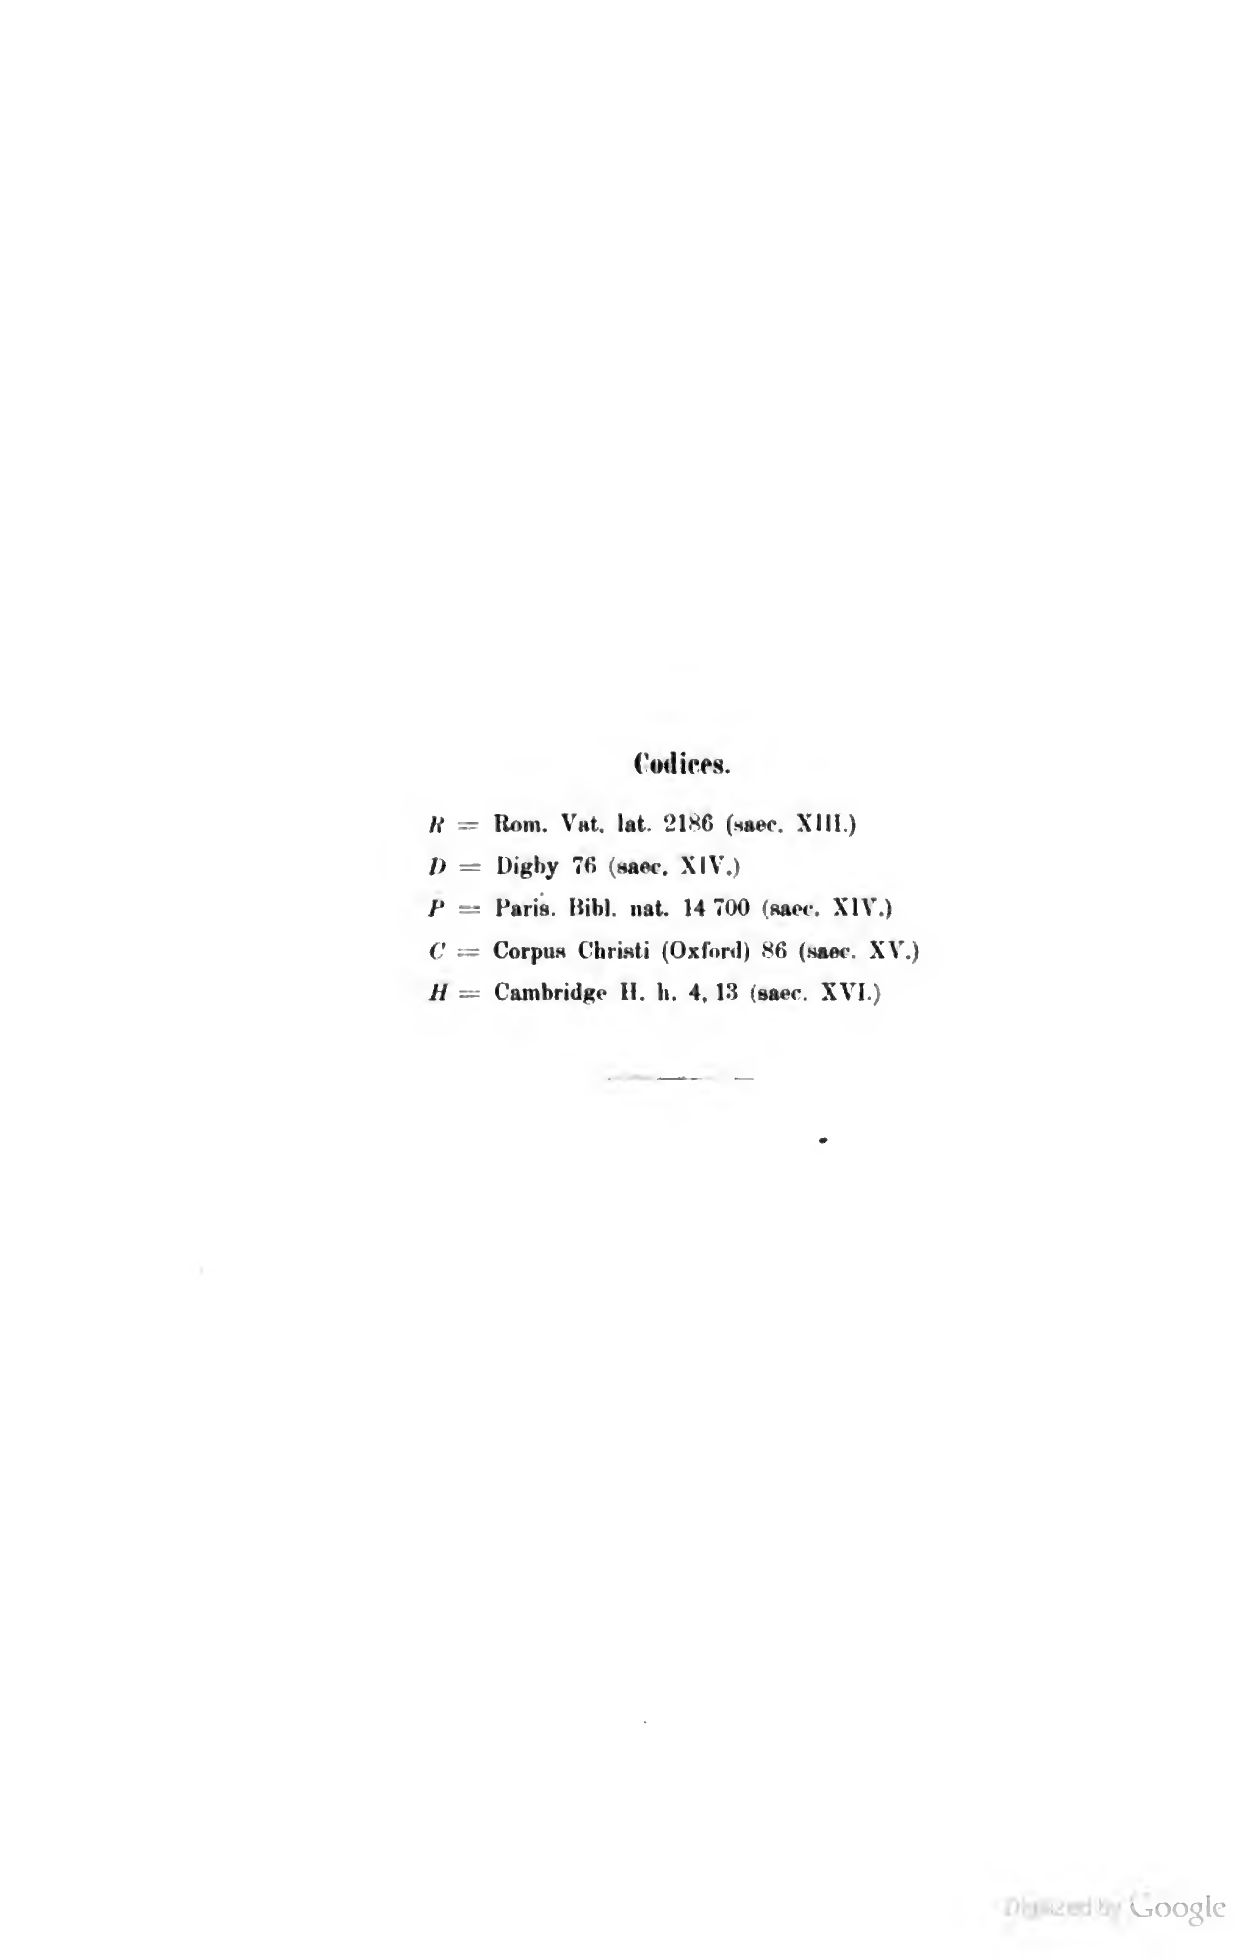 Codices.
R = Rom. Vat. lat. 2186 (saec. XIII.)
D = Digby 76 (saec. XIV.)
P = Paris. Bibl. nat. 14 700 (saec. XIV.)
C = Corpus Christi (Oxford) 86 (saec. XV.)
H = Cambridge H. h. 4, 13 (saec. XVI.)
Digitized by Google